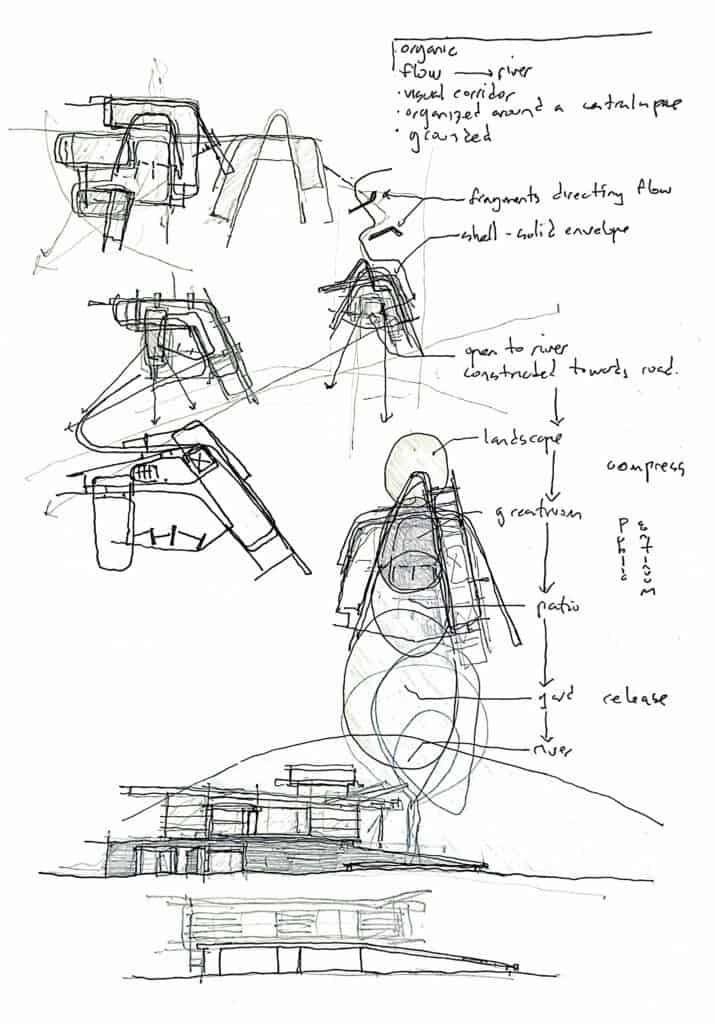 organic
flow → river
· visual corridor
· organized around a central space
· grounded
fragments directing flow
shell - solid envelope
open to river
constricted towards road.
landscape
compress
greatroom
public
continuum
patio
yard release
river